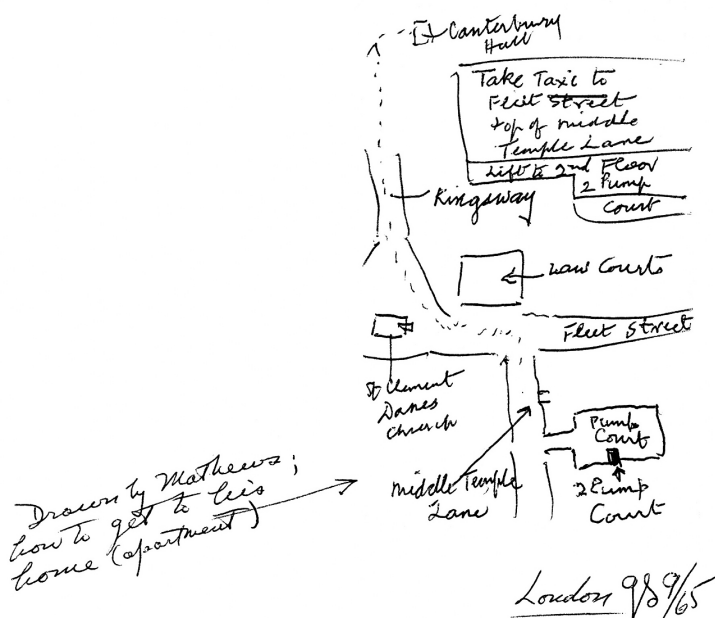 Canterbury
Hall
Take Taxi to
Fleet Street
top of middle
Temple Lane
Lift to 2nd Floor
2 Pump
Court
Kingsway
Law Courts
Fleet Street
St Clement
Danes
Church
Pump
Court
Middle Temple
Lane
2 Pump
Court
Drawn by Mathews;
how to get to his
home (apartment)
London